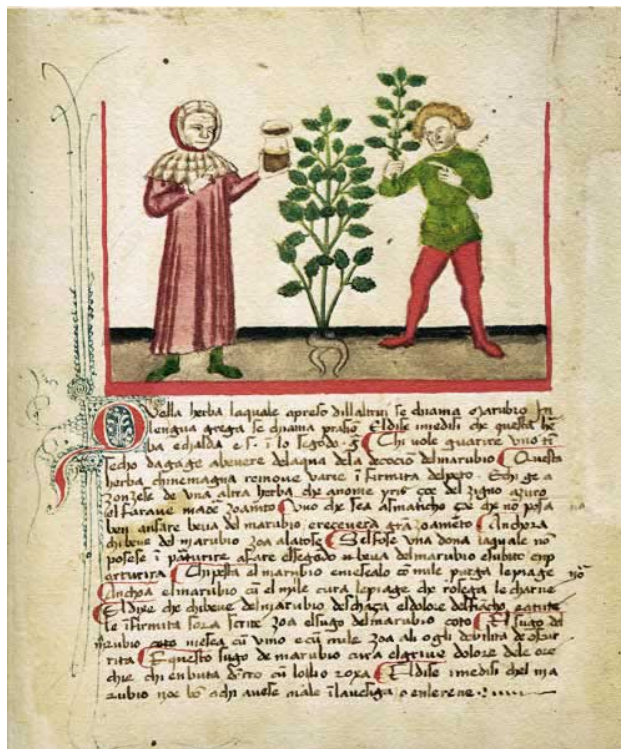 Quella herba laquale apreso dillatini se chiama Marubio In
lengua grega se chiama prasio Eldise i medisi che questa her
ba e chalda e s. i lo segodo g Chi vole guarire uno ti
secho dagage abevere delaqua dela decocio del marubio Questa
herba chi ne magna remove varie i firmita del peto E chi ge a
zonzese de una altra herba che a nome yris çoe del zigno azuro
el farave maor zoamto Uno che sea asmaticho çoe che no posa
ben ansare beva del marubio e recevera gra zoameto Anchora
chi beve del marubio zoa alatose Sel fose una dona laquale no
posese i parturire a fare elsegodo u beva del marubio e subito
parturira Chi pesta el marubio e meseda co mile purga le piage
Anchoa el marubio cu el mile cura le piage che rosega le charne
El dixe che chi beve del marubio deschaça el dolore del fiacho
le i firmita sora scrite zoa el sugo del marubio coto El sugo del
marubio coto mesea cu vino e cu mile zoa ali ogli debilita de
rita E questo sugo de marubio cura el grive dolore dele ore
chie chi en buta dentro cu lollio roxa El dise i medisi chel ma
rubio noe bo a chi avese male i la vesiga o en le rene